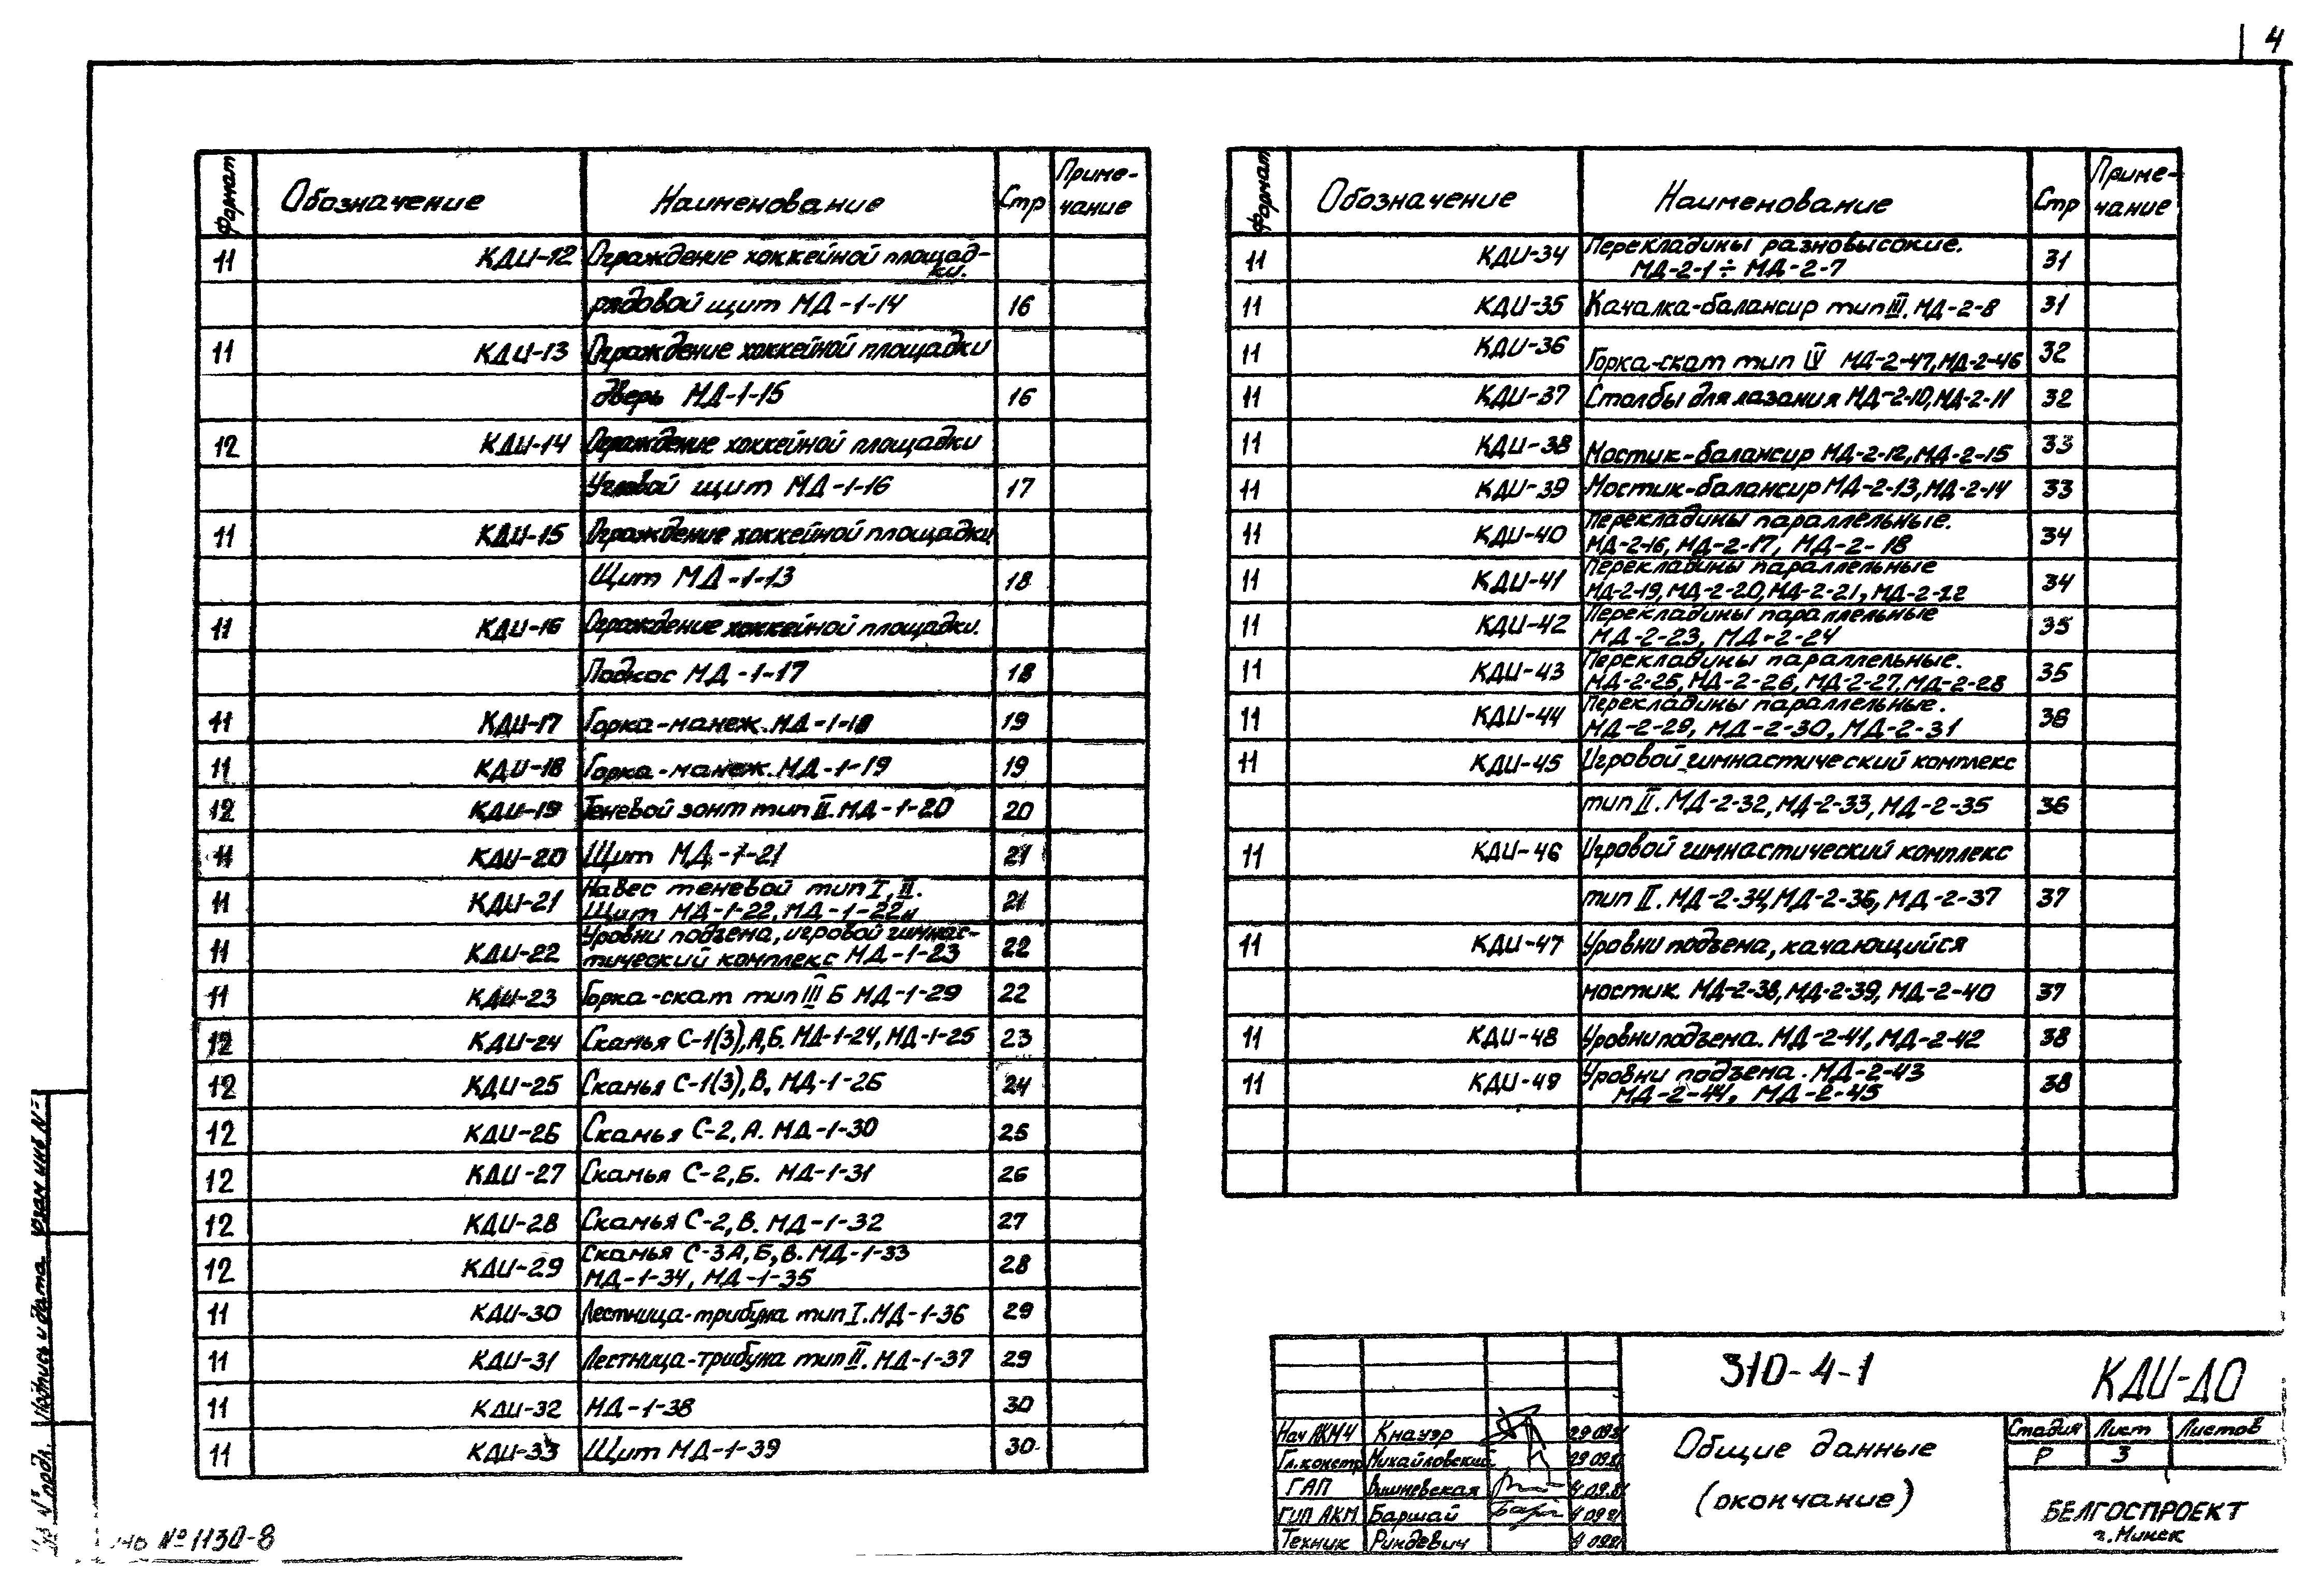 4
Формат Обозначение Наименование Стр Приме-
чание
11 КДИ-12 Ограждение хоккейной площад-
ки.
рядовой щит МД-1-14 16
11 КДИ-13 Ограждение хоккейной площадки
дверь МД-1-15 16
12 КДИ-14 Ограждение хоккейной площадки
Угловой щит МД-1-16 17
11 КДИ-15 Ограждение хоккейной площадки
Щит МД-1-13 18
11 КДИ-16 Ограждение хоккейной площадки.
Подкос МД-1-17 18
11 КДИ-17 Горка-манеж. МД-1-18 19
11 КДИ-18 Горка-манеж. МД-1-19 19
12 КДИ-19 Теневой зонт тип II. МД-1-20 20
11 КДИ-20 Щит МД-1-21 21
11 КДИ-21 Навес теневой тип I, II.
Щит МД-1-22, МД-1-22н 21
11 КДИ-22 Уровни подъема, игровой гимнас-
тический комплекс МД-1-23 22
11 КДИ-23 Горка-скат тип III Б МД-1-29 22
12 КДИ-24 Скамья С-1(3),А,Б. МД-1-24, МД-1-25 23
12 КДИ-25 Скамья С-1(3), В, МД-1-26 24
12 КДИ-26 Скамья С-2, А. МД-1-30 25
12 КДИ-27 Скамья С-2, Б. МД-1-31 26
12 КДИ-28 Скамья С-2, В. МД-1-32 27
12 КДИ-29 Скамья С-3А, Б, В. МД-1-33
МД-1-34, МД-1-35 28
11 КДИ-30 Лестница-трибуна тип I. МД-1-36 29
11 КДИ-31 Лестница-трибуна тип II. МД-1-37 29
11 КДИ-32 МД-1-38 30
11 КДИ-33 Щит МД-1-39 30
Формат Обозначение Наименование Стр Приме-
чание
11 КДИ-34 Перекладины разновысокие.
МД-2-1÷МД-2-7 31
11 КДИ-35 Качалка-балансир тип III. МД-2-8 31
11 КДИ-36 Горка-скат тип IV МД-2-47, МД-2-46 32
11 КДИ-37 Столбы для лазания МД-2-10, МД-2-11 32
11 КДИ-38 Мостик-балансир МД-2-12, МД-2-15 33
11 КДИ-39 Мостик-балансир МД-2-13, МД-2-14 33
11 КДИ-40 Перекладины параллельные.
МД-2-16, МД-2-17, МД-2-18 34
11 КДИ-41 Перекладины параллельные
МД-2-19, МД-2-20, МД-2-21, МД-2-22 34
11 КДИ-42 Перекладины параллельные
МД-2-23, МД-2-24 35
11 КДИ-43 Перекладины параллельные.
МД-2-25, МД-2-26, МД-2-27, МД-2-28 35
11 КДИ-44 Перекладины параллельные.
МД-2-29, МД-2-30, МД-2-31 36
11 КДИ-45 Игровой гимнастический комплекс
тип II. МД-2-32, МД-2-33, МД-2-35 36
11 КДИ-46 Игровой гимнастический комплекс
тип II. МД-2-34, МД-2-36, МД-2-37 37
11 КДИ-47 Уровни подъема, качающийся
мостик. МД-2-38, МД-2-39, МД-2-40 37
11 КДИ-48 Уровни подъема. МД-2-41, МД-2-42 38
11 КДИ-49 Уровни подъема. МД-2-43
МД-2-44, МД-2-45 38
310-4-1 КДИ-ДО
Нач АКМ4 Кнауэр 29 09.81
Гл. констр Михайловский 29 09.81
ГАП Вишневская 4 09.81
ГИП АКМ Баршай 4 09 81
Техник Риндевич 4 09.81
Общие данные
(окончание)
Стадия Лист Листов
Р 3
БЕЛГОСПРОЕКТ
г. Минск
Взам инв №
Подпись и дата
Инв № подл.
инв №1130-8